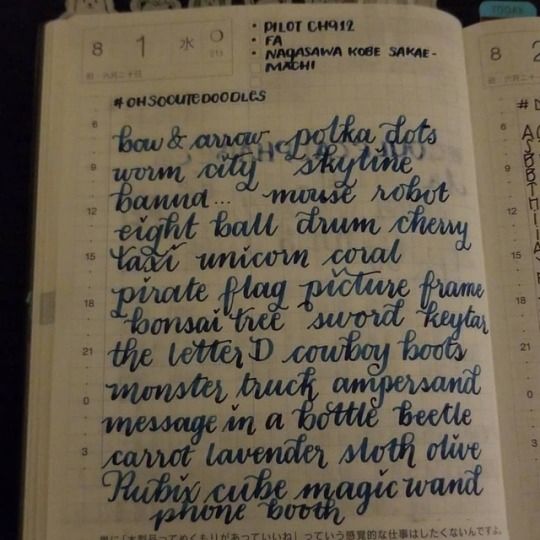 TODAY
8 1 水
旧・六月二十日
• PILOT CH912
• FA
• NAGASAWA KOBE SAKAE-
MACHI
8
#OHSOCUTEDOODLES
6
bow & arrow polka dots
worm city skyline
9
banna... mouse robot
12
eight ball drum cherry
15
taxi unicorn coral
pirate flag picture frame
18
bonsai tree sword keytar
21
the letter D cowboy boots
0
monster truck ampersand
message in a bottle beetle
3
carrot lavender sloth olive
Rubix cube magic wand
phone booth
っていう感覚的な仕事はしたくないんですよ。